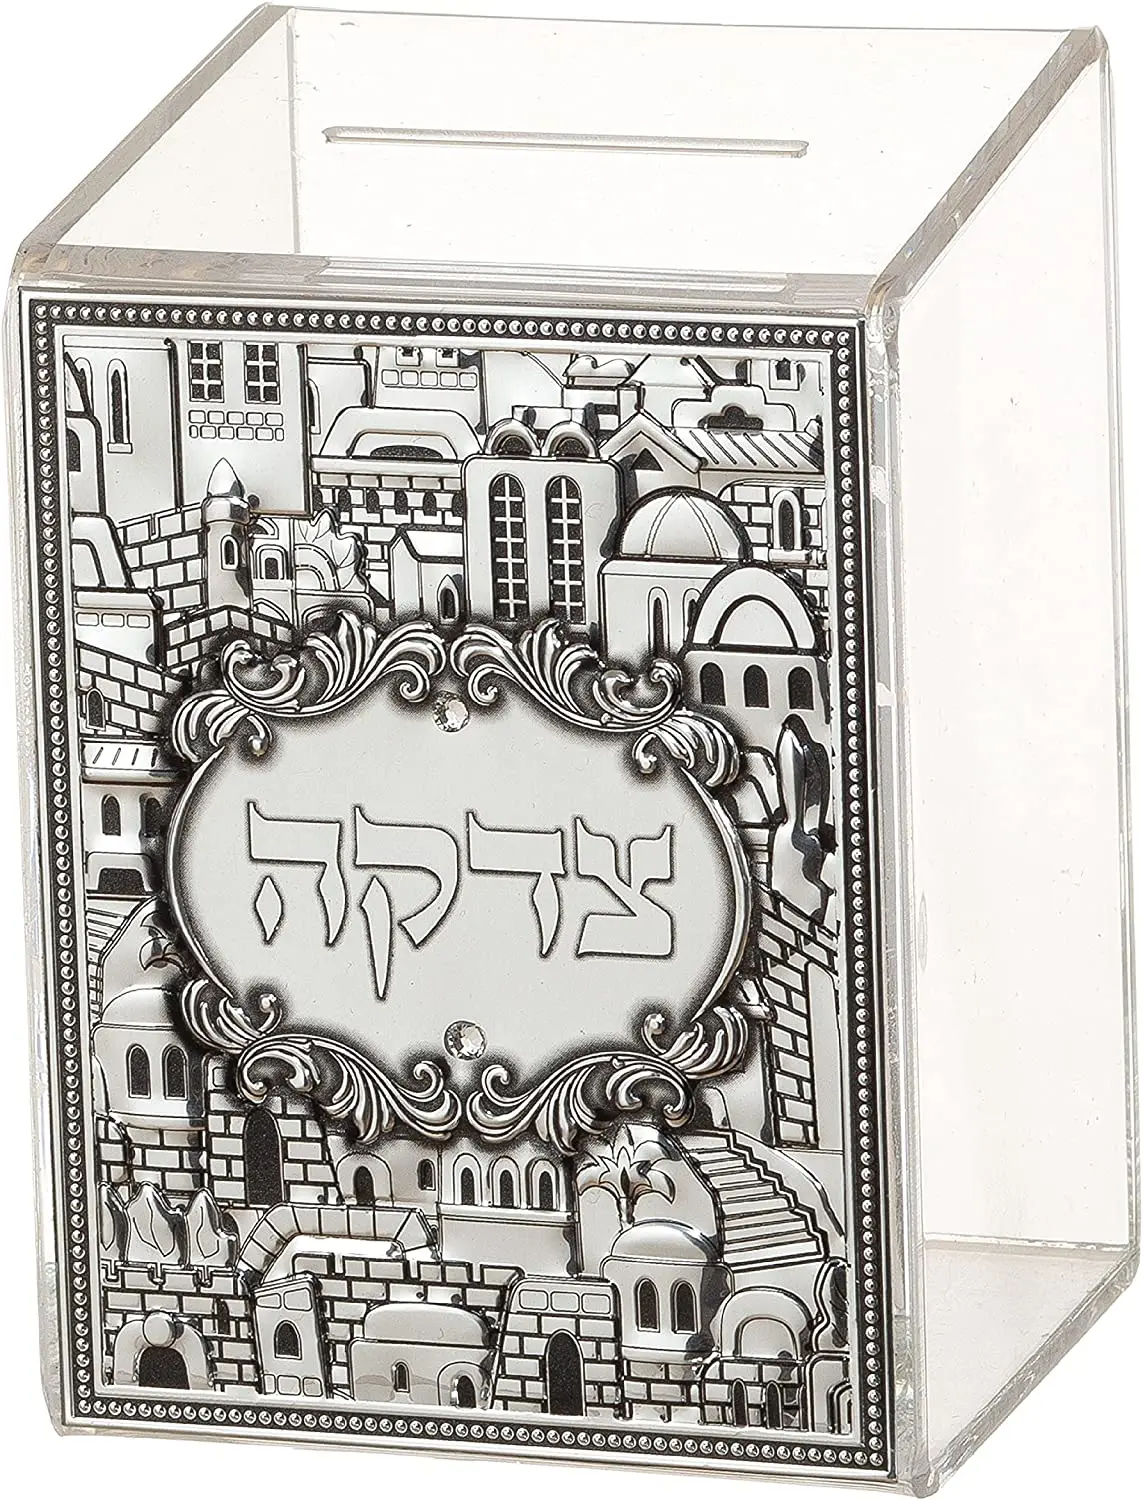 צדקה